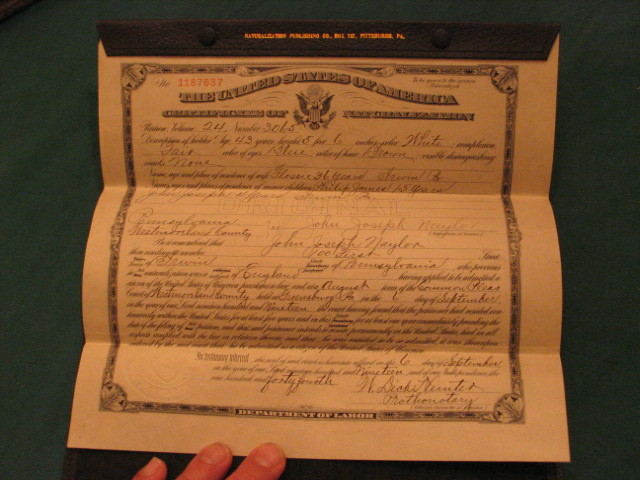 NATURALIZATION PUBLISHING CO., BOX 737, PITTSBURGH, PA.
No. 1187637 To be given to the person Naturalized.
THE UNITED STATES OF AMERICA
CERTIFICATE OF NATURALIZATION
Petition, Volume 24, Number 3065
Description of holder: Age, 43 years; height, 5 feet, 6 inches; color, White; complexion,
Fair; color of eyes, Blue; color of hair, Brown; visible distinguishing
marks, None
Name, age and place of residence of wife, 36 years, Irwin Pa
Names, ages and places of residence of minor children, Philip James 15 years
John Joseph years Irwin Pa
Pennsylvania
Westmoreland County John Joseph Naylor
Be it remembered, that John Joseph Naylor
then residing at number 700 First Street
of Irwin of Pennsylvania, who previous
to his naturalization was a of England, having applied to be admitted a
citizen of the United States of America pursuant to law, and at a August term of the Common Pleas
Court of Westmoreland County held at Greensburg, Pa. on the 6 day of September
in the year of our Lord nineteen hundred and Nineteen the court having found that the petitioner had resided con-
tinuously within the United States for at least five years and in this for one year immediately preceding the
date of the filing of his petition, and that said petitioner intends to reside permanently in the United States, had in all
respects complied with the law in relation thereto, and that he was entitled to be so admitted, it was thereupon
ordered by the said court that he be admitted as a citizen of the United States of America.
In testimony whereof the seal of said court is hereunto affixed on the 6 day of September
in the year of our Lord nineteen hundred and Nineteen and of our Independence the
one hundred and forty fourth
Prothonotary
DEPARTMENT OF LABOR